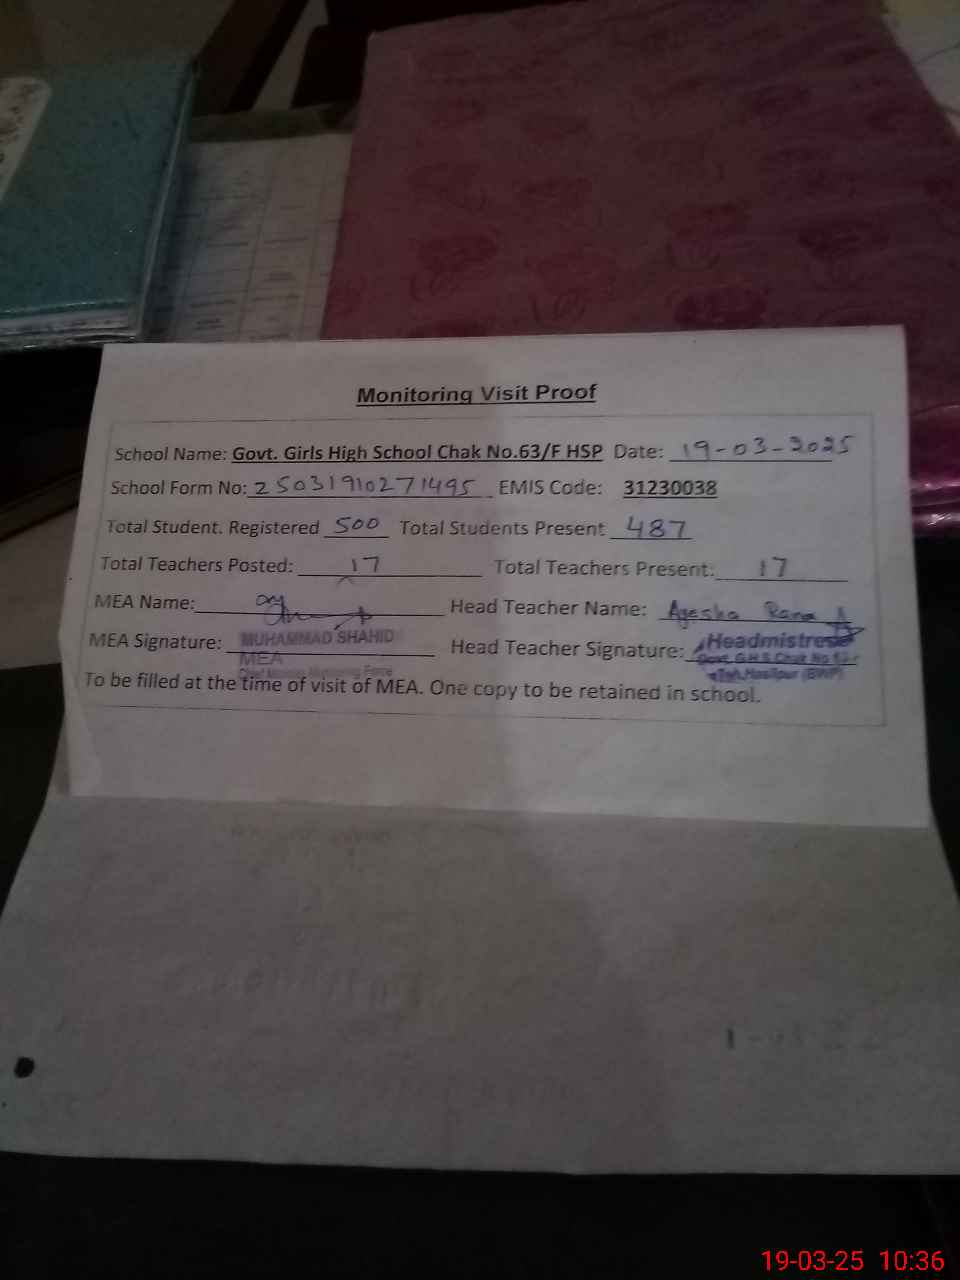 Monitoring Visit Proof
School Name: Govt. Girls High School Chak No.63/F HSP Date: 19-03-2025
School Form No: 25031910271495 EMIS Code: 31230038
Total Student. Registered 500 Total Students Present 487
Total Teachers Posted: 17 Total Teachers Present: 17
MEA Name: Head Teacher Name: Ayesha Rana
MEA Signature: MUHAMMAD SHAHID Head Teacher Signature: Headmistress
MEA Govt. G.H.S Chak No
Chief Minister Monitoring Force Teh. Hasilpur (BWP)
To be filled at the time of visit of MEA. One copy to be retained in school.
19-03-25 10:36